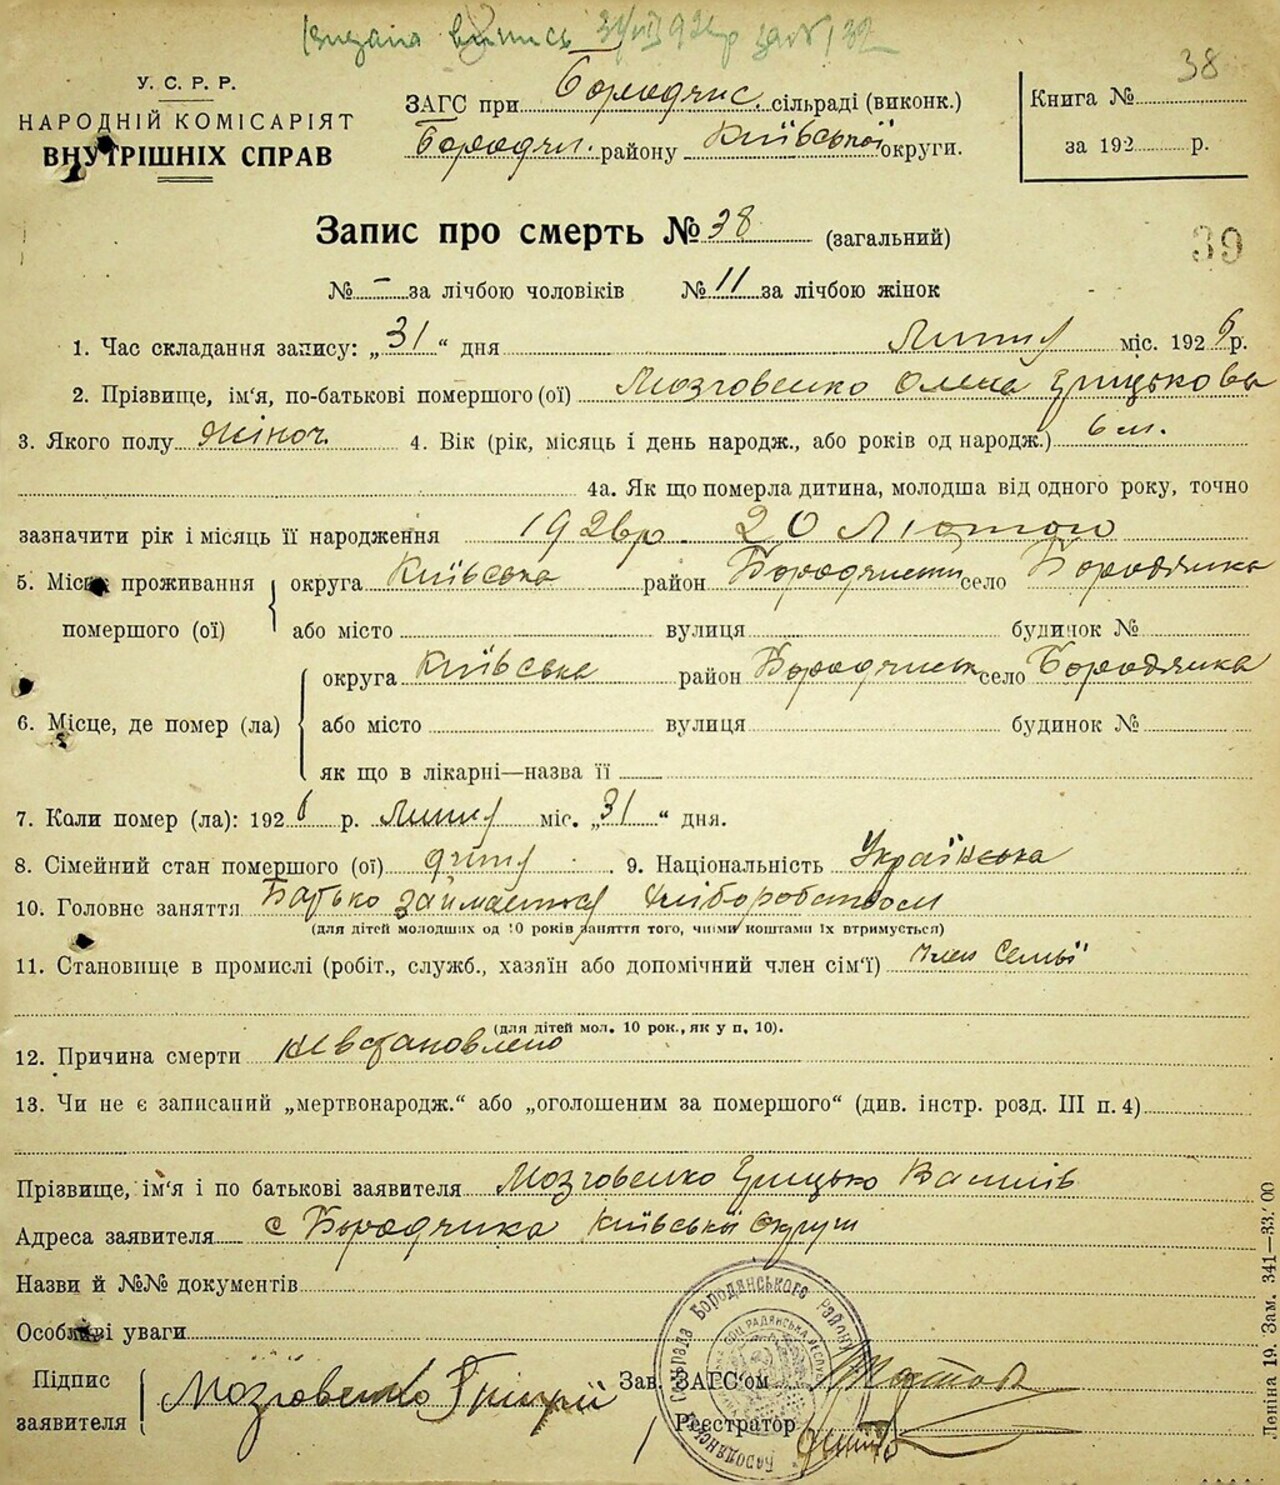 видана випись 31/VII 1926р
38
У. С. Р. Р.
НАРОДНІЙ КОМІСАРІЯТ
ВНУТРІШНІХ СПРАВ
ЗАГС при Бородянс. сільраді (виконк.)
Бородян. району Київської округи.
Книга №
за 192 р.
Запис про смерть № 38 (загальний)
39
№ – за лічбою чоловіків № 11 за лічбою жінок
1. Час складання запису: „31“ дня Липня міс. 1926 р.
2. Прізвище, ім‘я, по-батькові помершого (ої) Мозговенко Олена Грицькова
3. Якого полу жіноч. 4. Вік (рік, місяць і день народж., або років од народж.) 6 м.
4а. Як що померла дитина, молодша від одного року, точно
зазначити рік і місяць її народження 1926р. 20 Лютого
5. Місце проживання помершого (ої) округа Київська район Бородянськ село Бородянка
або місто вулиця будинок №
6. Місце, де помер (ла) округа Київська район Бородянськ село Бородянка
або місто вулиця будинок №
як що в лікарні—назва її
7. Коли помер (ла): 1926 р. Липня міс. „31“ дня.
8. Сімейний стан помершого (ої) дитя 9. Національність Українська
10. Головне заняття Батько займається хліборобством
(для дітей молодших од 10 років заняття того, чиїми коштами їх втримується)
11. Становище в промислі (робіт., служб., хазяїн або допомічний член сім‘ї) член семьї
(для дітей мол. 10 рок., як у п. 10).
12. Причина смерти невстановлено
13. Чи не є записаний „мертвонародж.“ або „оголошеним за померш​ого“ (див. інстр. розд. III п. 4)
Прізвище, ім‘я і по батькові заявителя Мозговенко Грицько Василів
Адреса заявителя с Бородянка Київської Округи
Назви й №№ документів
Особливі уваги
Підпис заявителя Мозговенко Григорій
Зав. ЗАГС‘ом
Реєстратор
Бородянська Сільрада Бородянського Району
Леніна 19. Зам. 341—33.′00